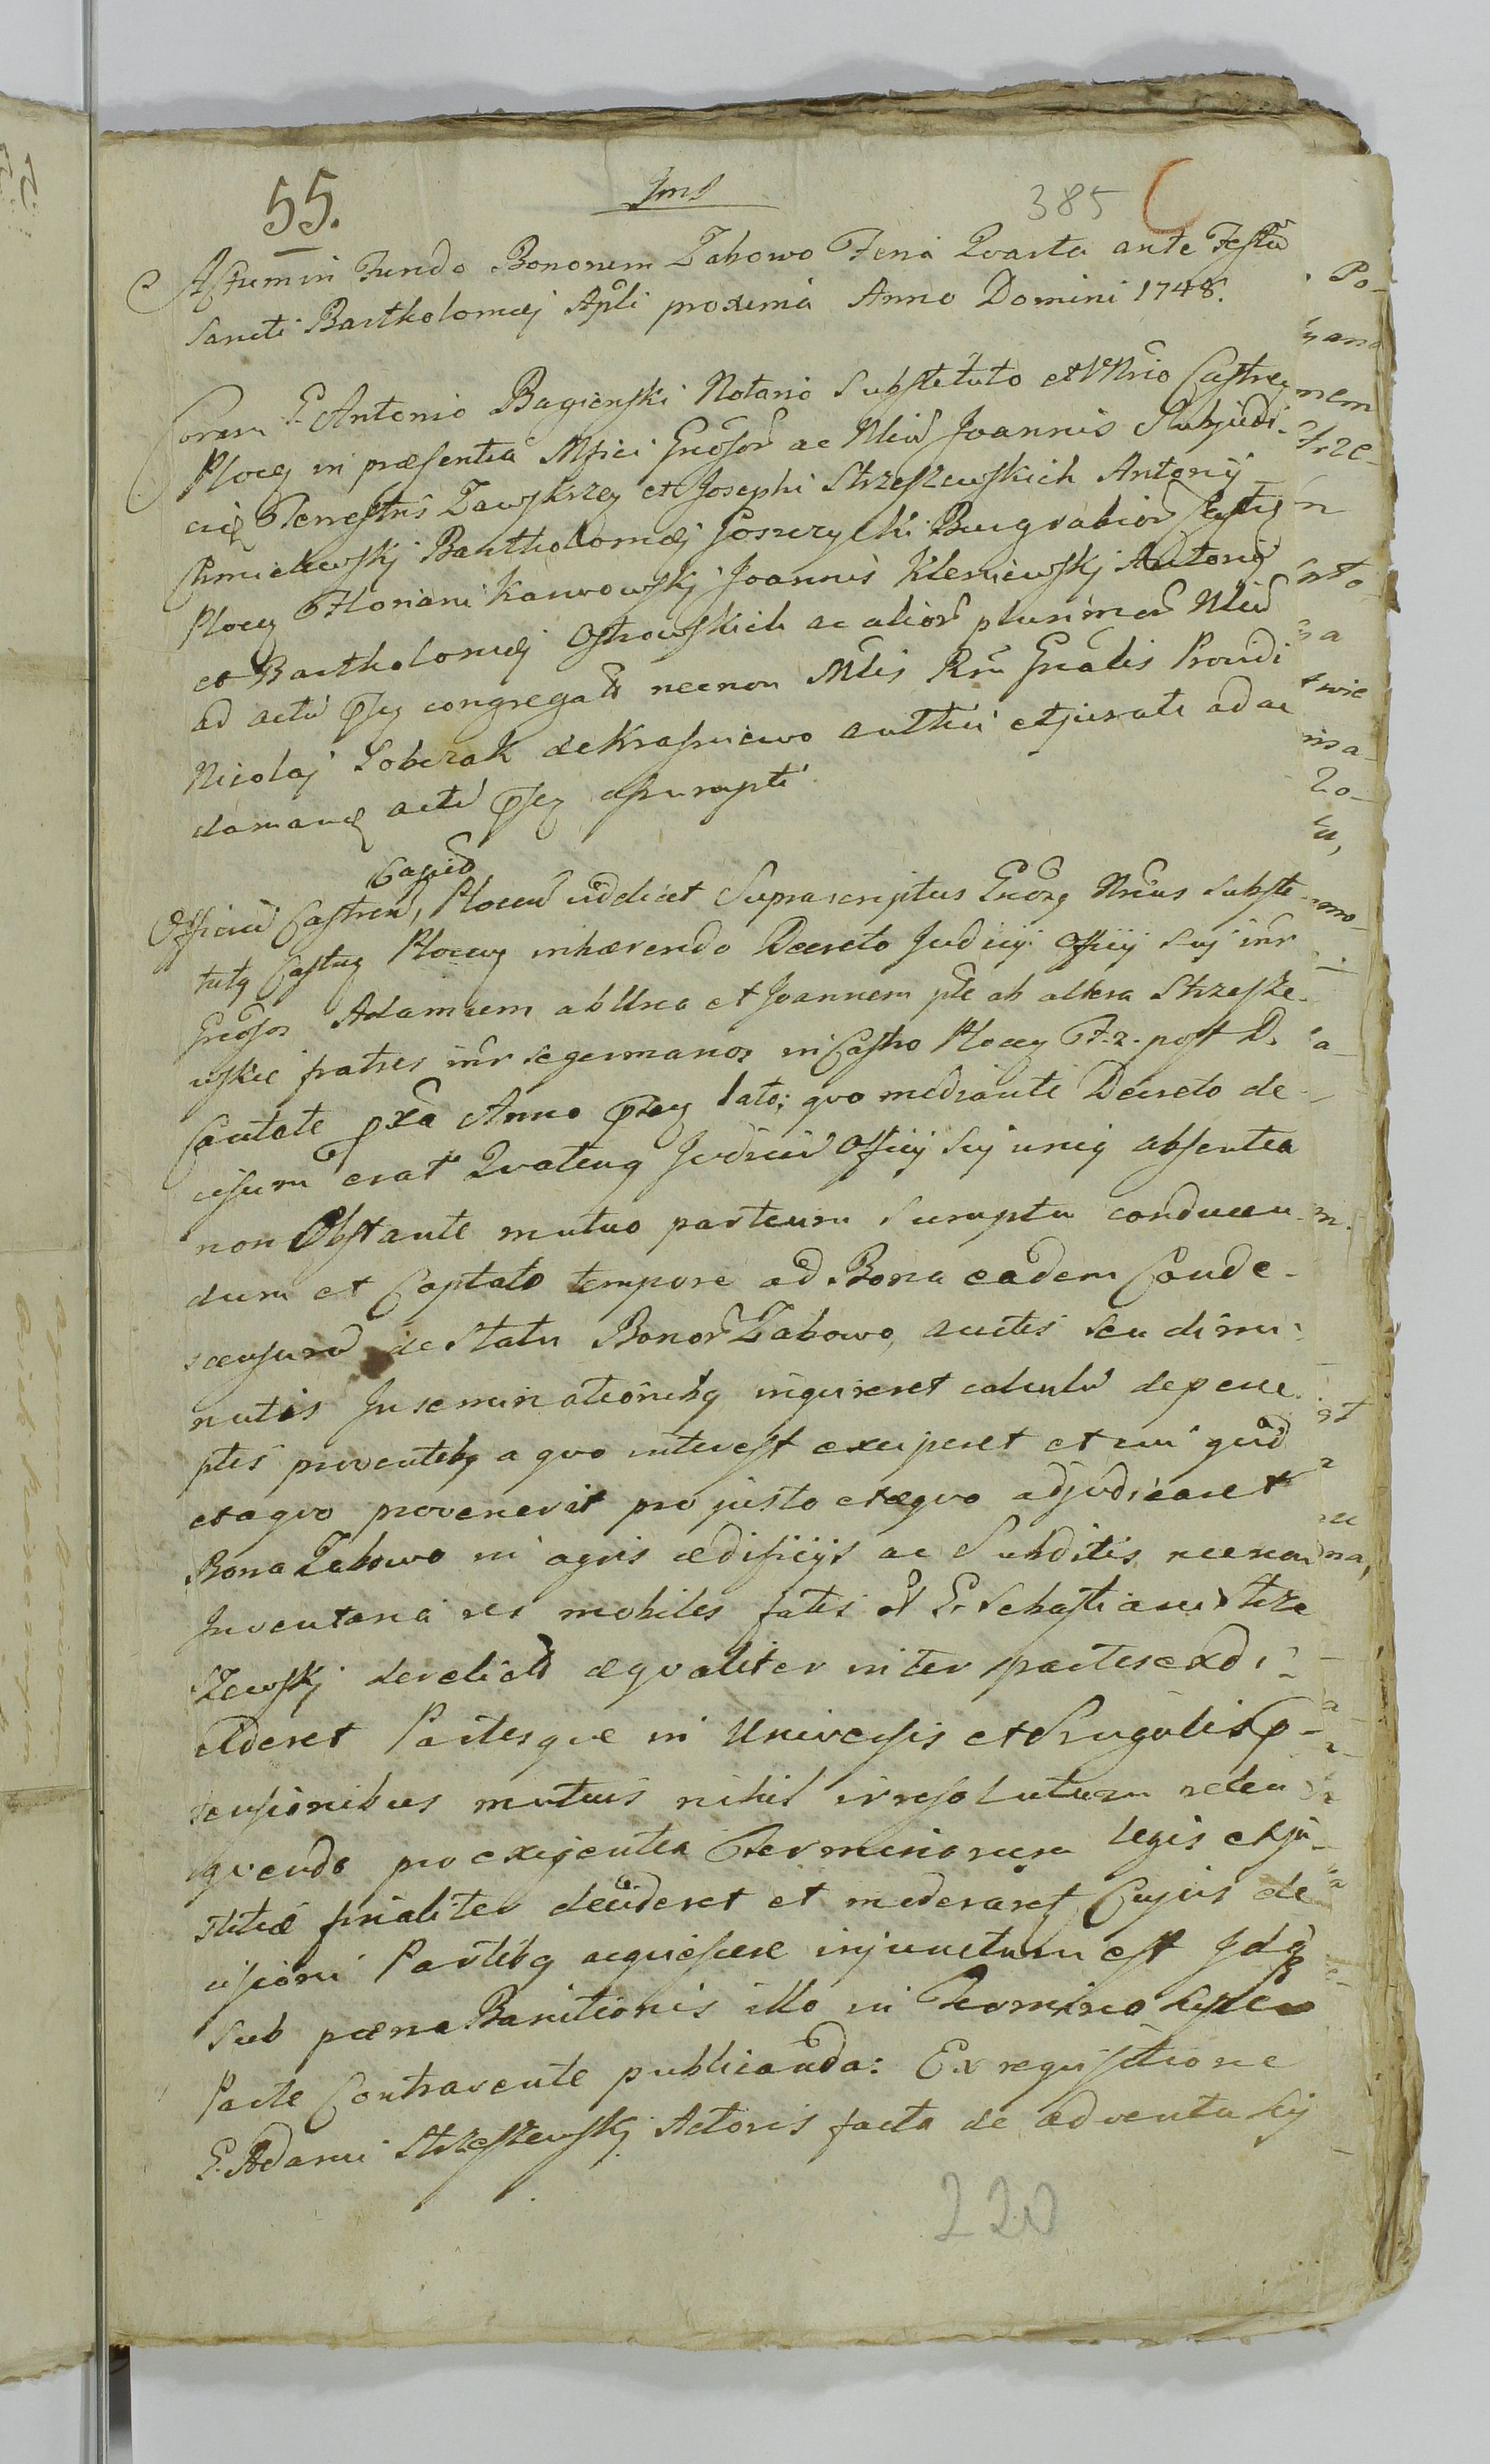 55.
385
Actum in Fundo Bonorum Zabowo Feria Qvarta ante Festũ
Sancti Bartholomæj Apli proxima Anno Domini 1748.
Coram G. Antonio Bagienski Notario Substituto et Castren
Plocen in præsentia Mfici Gnosor ac Nliũ Joannis Subjudi-
cis Terrestris Zawskrzen et Josephi Strzeszewskich Antonij
Chmielewskj Bartholomæj Goszczycki Burgrabior
Plocen Floriani Karwowskj Joannis Kleniewskj Antonij
et Bartholomæj Ostrowskich ac alior plurimor Nliũ
ad actũ congregat necnon Mlis Rni Gnalis Providi
Nicolaj Sobczak de Krasniewo authci et jurati ad ac
clamandũ actũ assumpti
Capit
Officiũ Castren, Plocen videlicet Suprascriptus Substi-
tutq Plocen inhærendo Decreto Judicij Officij Sui intr
Gnosos Adamum ab Una et Joannem pte ab altera Strzesze-
wskie fratres intr se germanos in Castro Plocen F. 2. post D.
Cantate pxa Anno lato; qvo mediante Decreto de-
cisum erat Qvatenq Judiciũ Officij Sui uniq absentia
non Obstante mutuo partium Sumptu conducen-
dum et Captato tempore ad Bona eadem Conde-
scensurũ de Statu Bonor Zabowo, auctis seu dimi-
nutis Inseminationibq inqvireret calculũ de perce-
ptis proventibq a qvo interest exciperet et cui qvid
et a qvo provenerit pro justo et æqvo adjudicaret
Bona Zabowo in agris ædificijs ac Subditis necnon
Inventaria res mobiles fatis G. Sebastiani Strze
szewskj derelictas æqvaliter inter partes exdi-
videret Partesque in Universis et Singulis p-
tensionibus mutuis nihil irresolutum relin
qvendo pro exigentia Terminorum legis et ju-
stitiæ finaliter decideret et moderaret Cujus de
cisioni Partibq acqviescere injunctum est Idqꝫ
Sub pœna Banitionis illo in Termino
Parte Contravente publicanda: Ex reqvisitione
G. Adami Strzeszewskj Actoris facta de adventu Sui
220